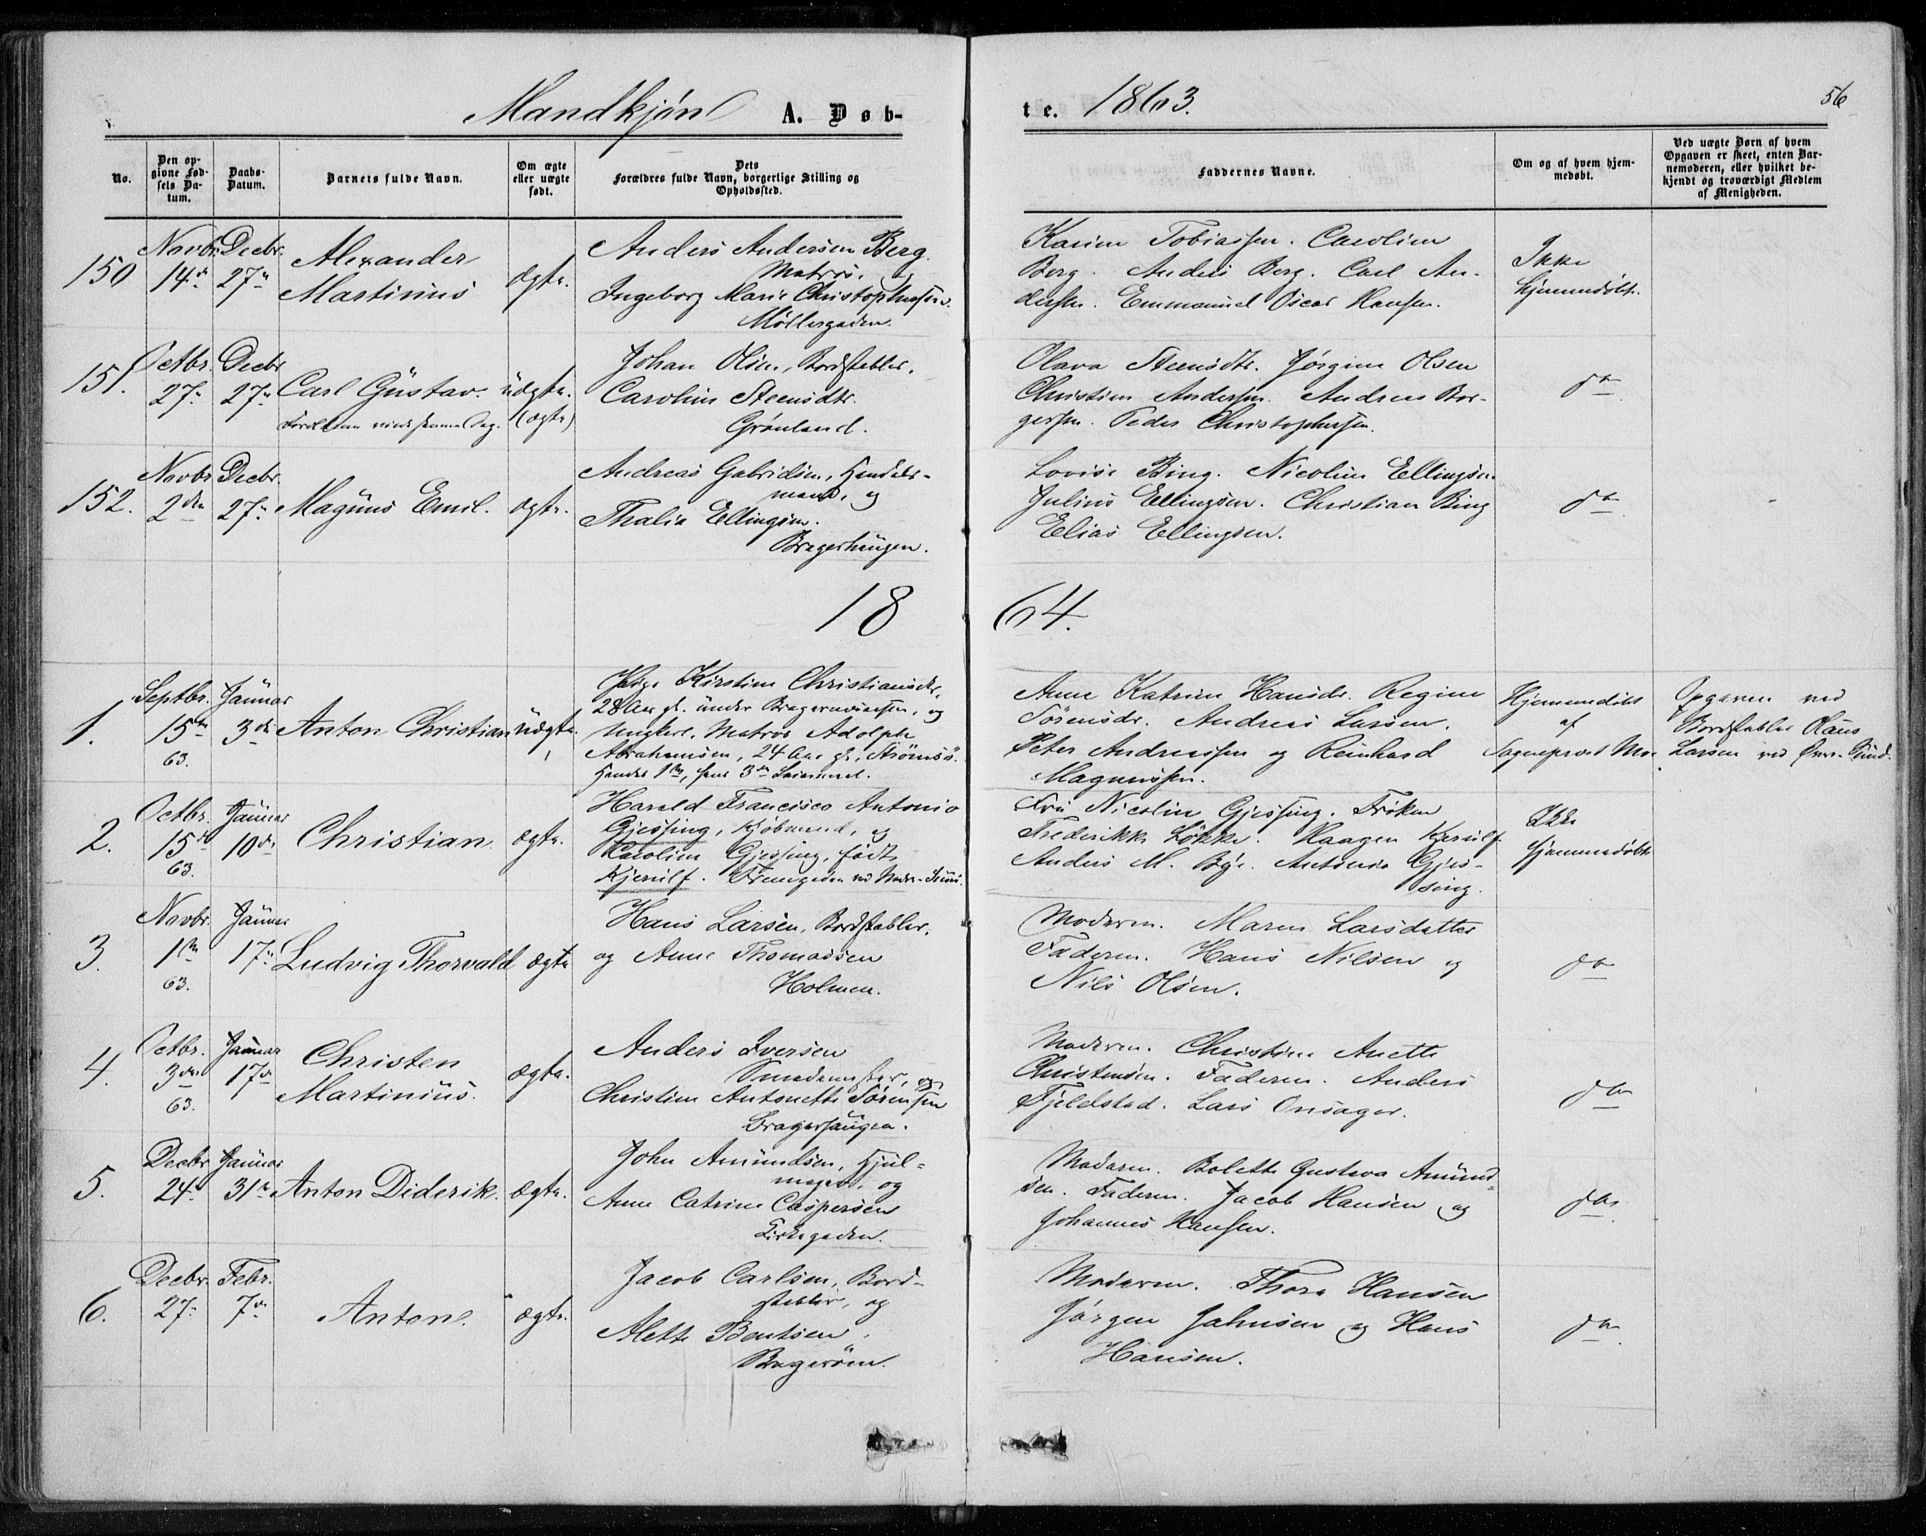 Mandkjøn A. Døb-
te. 1863.
56
No.
Den op-
givne Fød-
sels Da-
tum.
Daabs-
Datum.
Barnets fulde Navn.
Om ægte
eller uægte
født.
Dets
Forældres fulde Navn, borgerlige Stilling og
Opholdssted.
Faddernes Navne.
Om og af hvem hjem-
medøbt.
Ved uægte Børn af hvem
Opgaven er skeet, enten Bar-
nemoderen, eller hvilket be-
kjendt og troværdigt Medlem
af Menigheden.
150
Novbr.
14de
Decbr.
27de
Alexander
Martinius
ægte.
Anders Andersen Berg.
Matros, og
Ingeborg Marie Christophersen.
Møllergaden.
Karen Tobiassen. Caroline
Berg. Anders Berg. Carl An-
dersen. Emmanuel Oscar Hansen.
Ikke
hjemmedøbt.
151.
Octbr.
27de
Decbr.
27de
Carl Gustav.
uægte.
(ægte)
Johan Olsen, Bordstabler,
Caroline Steensdtr.
Grønland.
Olava Steensdtr. Jørgine Olsen
Christian Andersen. Andreas Bor-
gersen. Peder Christophersen.
do
152.
Novbr.
2den
Decbr.
27de
Magnus Emil.
ægte.
Andreas Gabrielsen, Handels-
mand, og
Thalia Ellingsen.
Bragerhaugen.
Lovise Bing. Nicoline Ellingsen.
Julius Ellingsen. Christian Bing
Elias Ellingsen.
do
18 64.
1.
Septbr.
15de
63.
Januar
3die
Anton Christian
uægte.
Kirstine Christiansdtr,
28 Aar gl. under Bragernæsaasen, og
Ungkarl, Matros Adolph
Abrahamsen, 24 Aar gl., Strømsø.
Hendes 1ste, hans 3die Leiermaal.
Anne Katrine Hansdr. Regine
Sørensdr. Andreas Larsen.
Peter Andreassen og Reinhard
Magnussen.
Hjemmedøbt
af
Sogneprest Moe
Opgaven ved
Bordstabler Olaus
Larsen ved Øvre-Sund.
2.
Octbr.
15de
63.
Januar
10de
Christian
ægte.
Harald Francisco Antonio
Gjessing, Kjøbmand, og
Caroline Gjessing, født
Kjerulf. Tverrgaden ved Nedre-Sund.
Fru Nicoline Gjessing. Frøken
Frederikke Løkke. Haagen Kjerulf
Anders M. Bye. Antonio Gjes-
sing.
Ikke
hjemmedøbt
3.
Novbr.
1ste
63.
Januar
17de
Ludvig Thorvald
ægte
Hans Larsen, Bordstabler,
og Anne Thomassen
Holmen.
Moderen. Maren Larsdatter
Faderen. Hans Nilsen og
Nils Olsen.
do
4.
Octbr.
3die
63.
Januar
17de
Christen
Martinius.
ægte.
Anders Iversen
Smedemester, og
Christine Antonette Sørensen
Bragerhaugen.
Moderen. Christine Anette
Christensen. Faderen. Anders
Fjeldstad. Lars Onsager.
do
5.
Decbr.
24de
Januar
31te
Anton Diderik.
ægte.
John Amundsen, Hjul-
mager, og
Anne Catrine Caspersen
Kirkegaden.
Moderen. Bolette Gustava Amund-
sen. Faderen. Jacob Hansen og
Johannes Hansen.
do
6.
Decbr.
27de
Febr.
7de
Anton.
ægte.
Jacob Carlsen, Bord-
stabler, og
Alette Bentsen,
Bragerøen.
Moderen. Thora Hansen
Jørgen Jahnsen og Hans
Hansen.
do